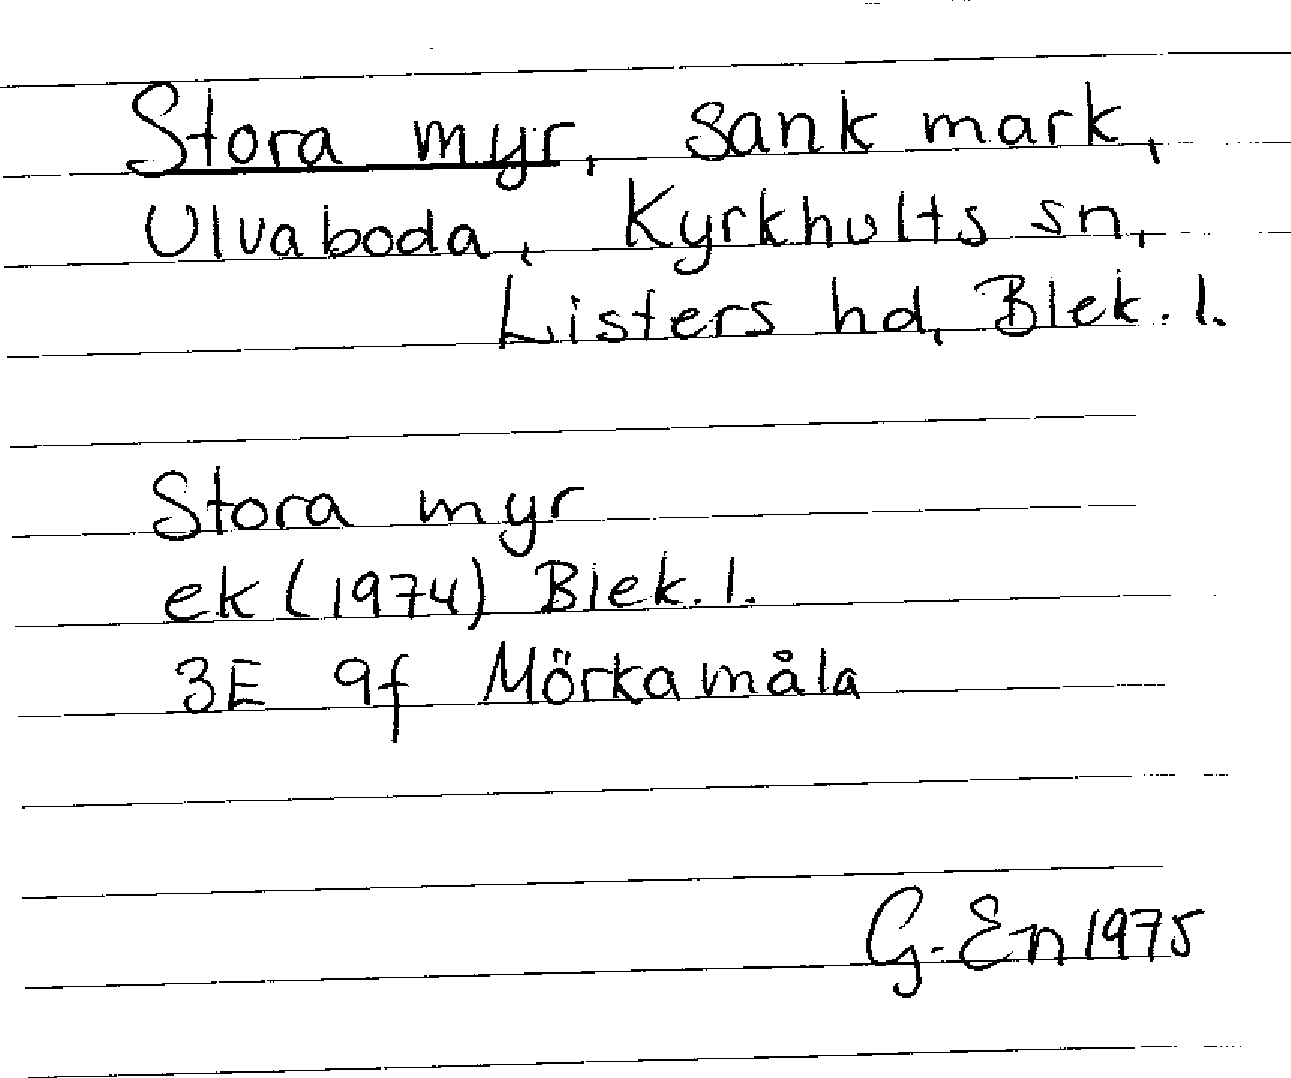 Stora myr, sank mark,
Ulvaboda, Kyrkhults sn,
Listers hd, Blek. l.
Stora myr
ek (1974) Blek. l.
3E 9f Mörkamåla
G. En 1975